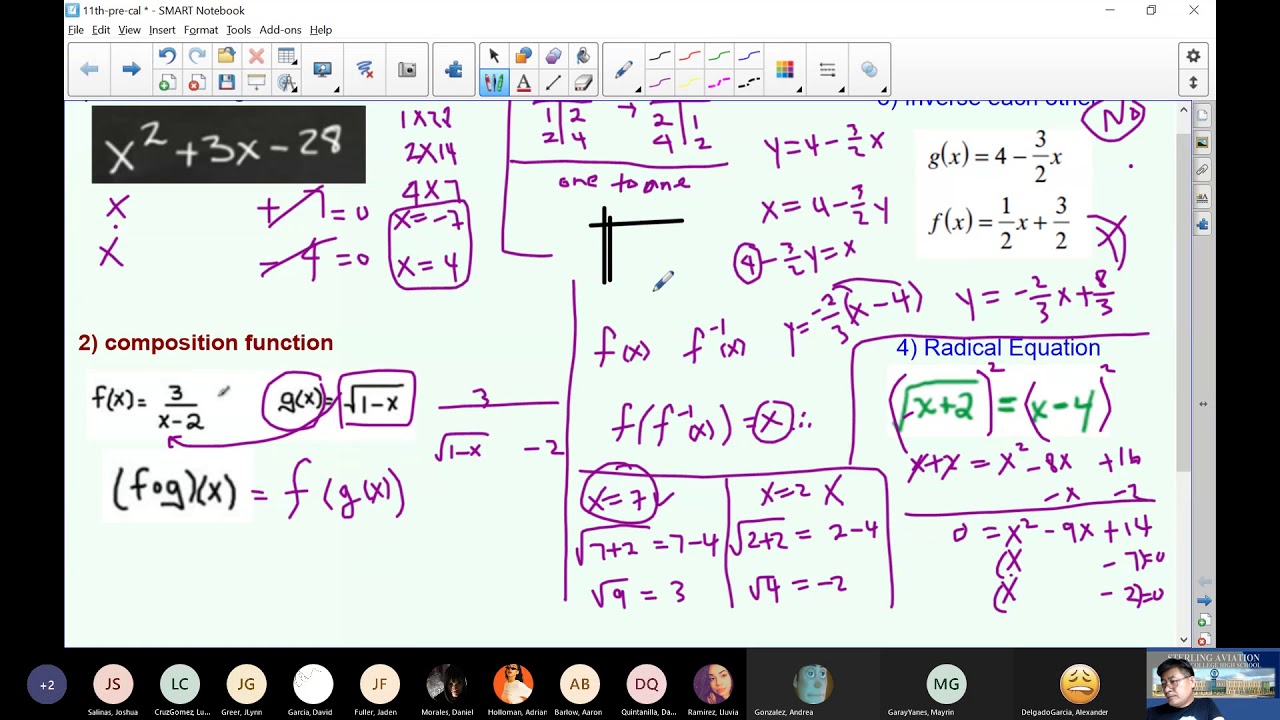 11th-pre-cal * - SMART Notebook
File Edit View Insert Format Tools Add-ons Help
x² + 3x - 28
1x28
2x14
4x7
x +7 = 0
x -4 = 0
x = -7
x = 4
1 | 2 → 2 | 1
2 | 4 4 | 2
one to one
y = 4 - 3/2 x
x = 4 - 3/2 y
4 - 3/2 y = x
y = -2/3 (x - 4)
y = -2/3 x + 8/3
Inverse each other
NO
g(x) = 4 - 3/2 x
f(x) = 1/2 x + 3/2
X
2) composition function
f(x) = 3/(x-2)
g(x) = √1-x
3
√1-x - 2
(f∘g)(x) = f(g(x))
f(x) f⁻¹(x)
f(f⁻¹(x)) = x ∴
x = 7 ✓
√7+2 = 7-4
√9 = 3
x = 2 X
√2+2 = 2-4
√4 = -2
4) Radical Equation
(√x+2)² = (x-4)²
x+2 = x² - 8x + 16
-x -2
0 = x² - 9x + 14
(x - 7)=0
(x - 2)=0
+2
JS
LC
JG
JF
AB
DQ
MG
Salinas, Joshua
CruzGomez, Lu...
Greer, JLynn
Garcia, David
Fuller, Jaden
Morales, Daniel
Holloman, Adrian
Barlow, Aaron
Quintanilla, Da...
Ramirez, Lluvia
Gonzalez, Andrea
GarayYanes, Mayrin
DelgadoGarcia, Alexander
STERLING AVIATION
COLLEGE HIGH SCHOOL